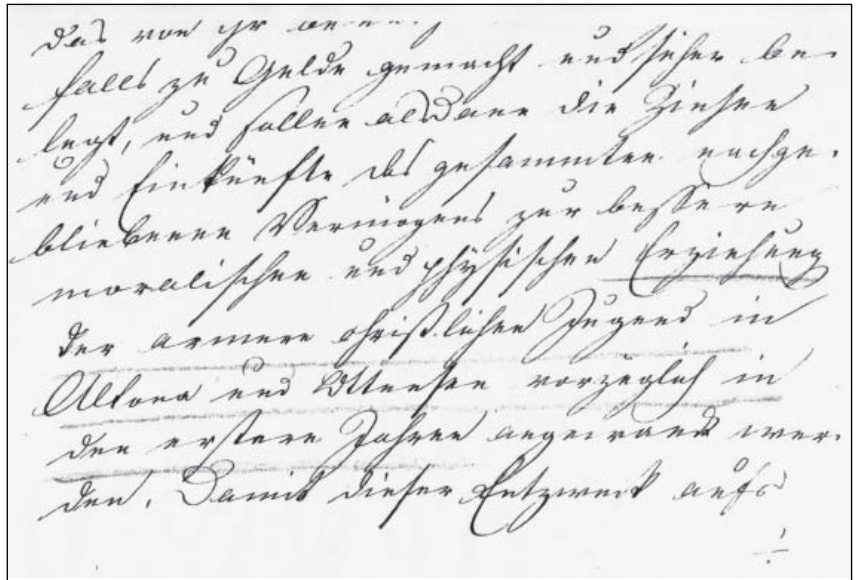 das von ihr
falls zu Gelde gemacht und sicher be-
legt, und sollen alsdann die Zinsen
und Einkünfte des gesammten nachge-
bliebenen Vermögens zur bessern
moralischen und physischen Erziehung
der armen christlichen Jugend in
Altona und Ottensen vorzüglich in
den ersten Jahren angewandt wer-
den. Damit dieser Entzweck aufs